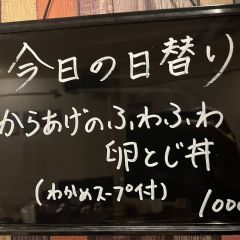 今日の日替り
からあげのふわふわ
卵とじ丼
(わかめスープ付)
1000